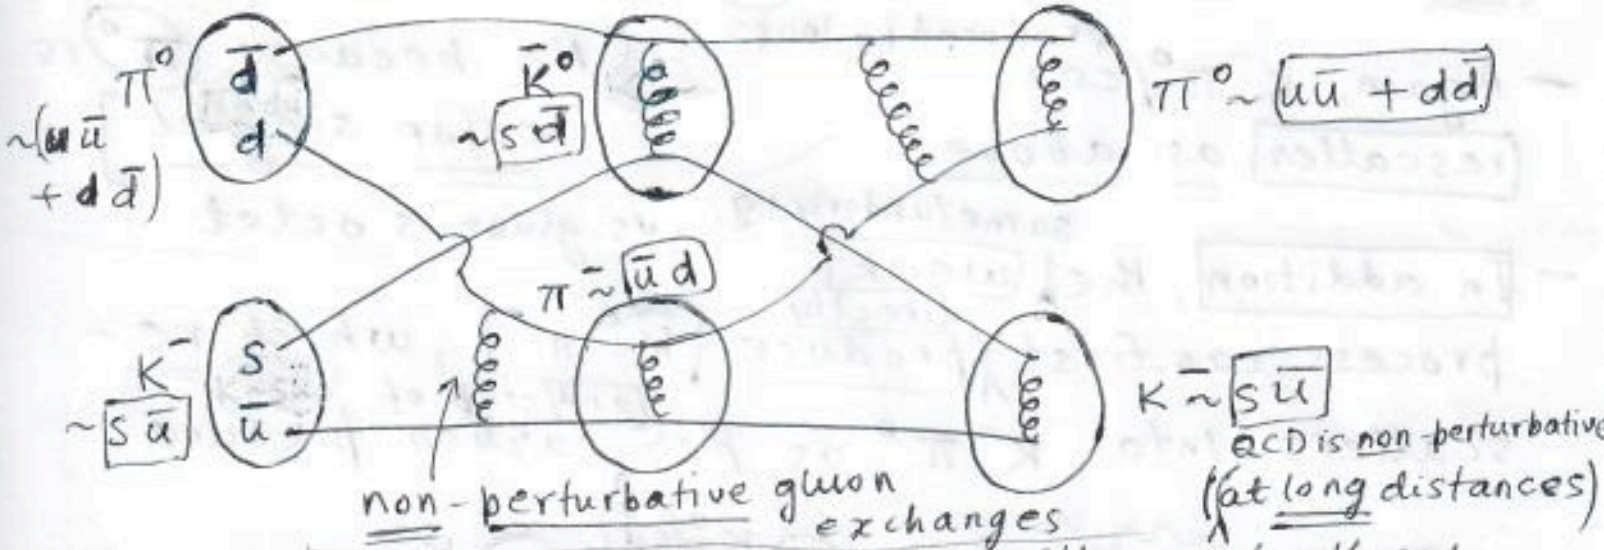 π⁰
~(uū
+ dd̄)
d̄
d
K̄⁰
~ s d̄
π⁰ ~ uū + dd̄
π⁻ ~ ū d
K⁻
~ s ū
s
ū
K⁻ ~ s ū
QCD is non-perturbative
(at long distances)
non-perturbative gluon
exchanges